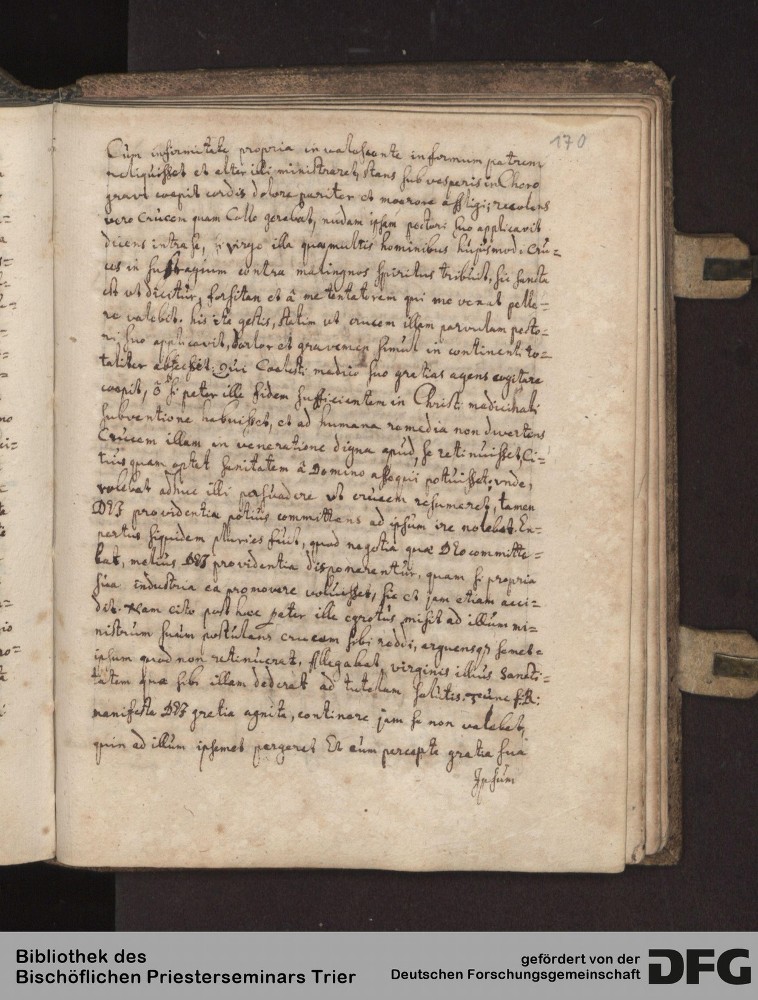 170
Cum infirmitate propria invalescente infirmum patrem
reliquisset et alter illi ministraret, stans sub vesperis in Choro
gravi coepit cordis dolore pariter et moerore affligi; recolens
vero Crucem quam Collo gerebat, nudam ipsam pectori suo applicavit
dicens intra se, si virgo illa quae multis hominibus hujusmodi Cru=
ces in suffragium contra malingnos spiritus tribuit, sic sancta
est ut dicitur, forsitan et à me tentatorem qui me vexat pelle=
re valebit. his ita gestis, statim ut crucem illam parvulam pecto=
ri suo applicavit, dolor et gravamen simul in continenti to=
taliter abscessit: Qui Coelesti medico suo gratias agens cogitare
coepit, ô si pater ille fidem sufficientem in Christi medicinali
subventione habuisset, et ad humana remedia non divertens
Crucem illam in veneratione digna apud se retinuisset, Ci=
tius quam optet sanitatem à Domino assequi potuisset: unde,
volebat adhuc illi persuadere ut crucem resumeret, tamen
DEI providentiae potius committens ad ipsum ire nolebat. Ex=
pertus siquidem pluries fuit, quod negotia quae DEO committe=
bat, melius DEI providentia disponerentur, quam si propria
sua industria ea promovere voluisset, sic et jam etiam acci=
dit. Nam cito post haec pater ille egrotus misit ad illum mi=
nistrum suum postulans crucem sibi reddi, arguensq3 semet=
ipsum quod non retinuerat. Allegabat virginis illius Sancti=
tatem quae sibi illam dederat ad tutelam salutis. Tunc F.R:
manifesta DEI gratia agnita, continere jam se non valebat,
quin ad illum ipsemet pergeret Et eum percepta gratia sua
Ipsum
Bibliothek des
Bischöflichen Priesterseminars Trier
gefördert von der
Deutschen Forschungsgemeinschaft
DFG